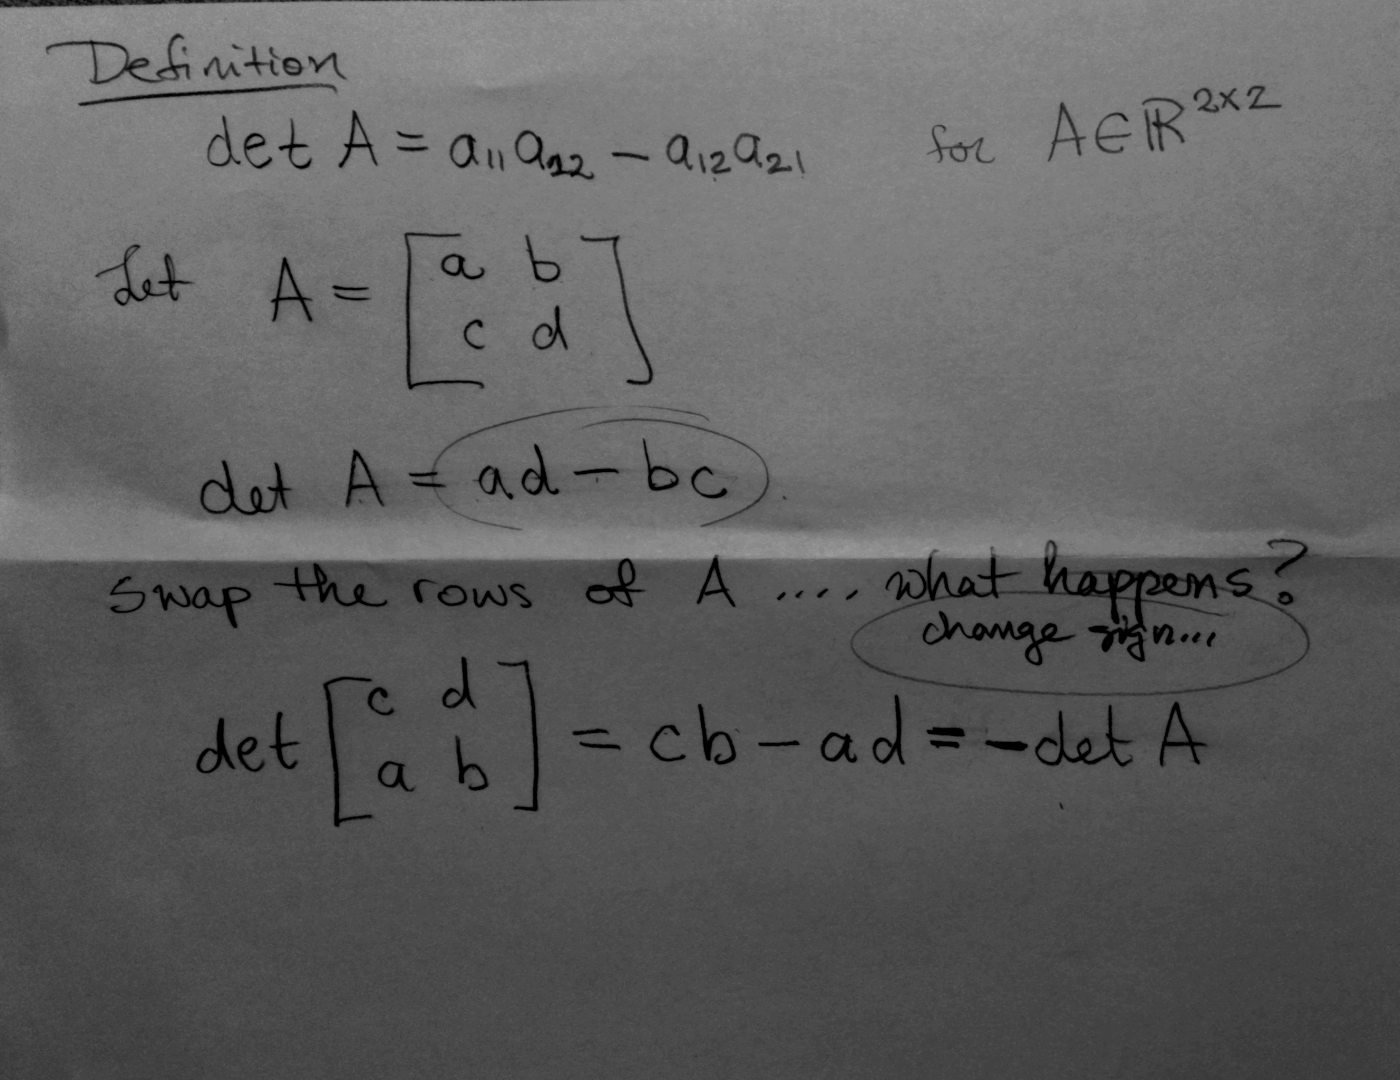 Definition
det A = a₁₁a₂₂ − a₁₂a₂₁ for A∈ℝ²ˣ²
Let A = [a b
c d]
det A = ad − bc
swap the rows of A .... what happens?
change sign...
det [c d
a b] = cb − ad = −det A